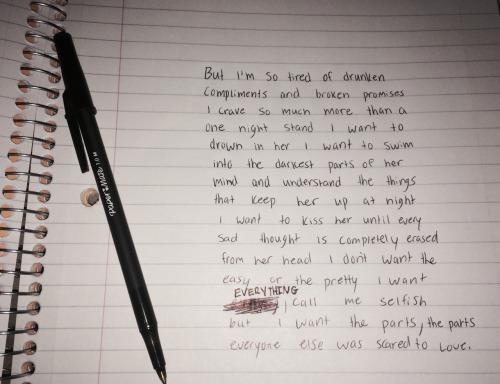 But I'm so tired of drunken
compliments and broken promises
I crave so much more than a
one night stand I want to
drown in her I want to swim
into the darkest parts of her
mind and understand the things
that keep her up at night
I want to kiss her until every
sad thought is completely erased
from her head I don't want the
easy or the pretty I want
EVERYTHING, call me selfish
but I want the parts, the parts
everyone else was scared to love.
paper mate 1.0 M